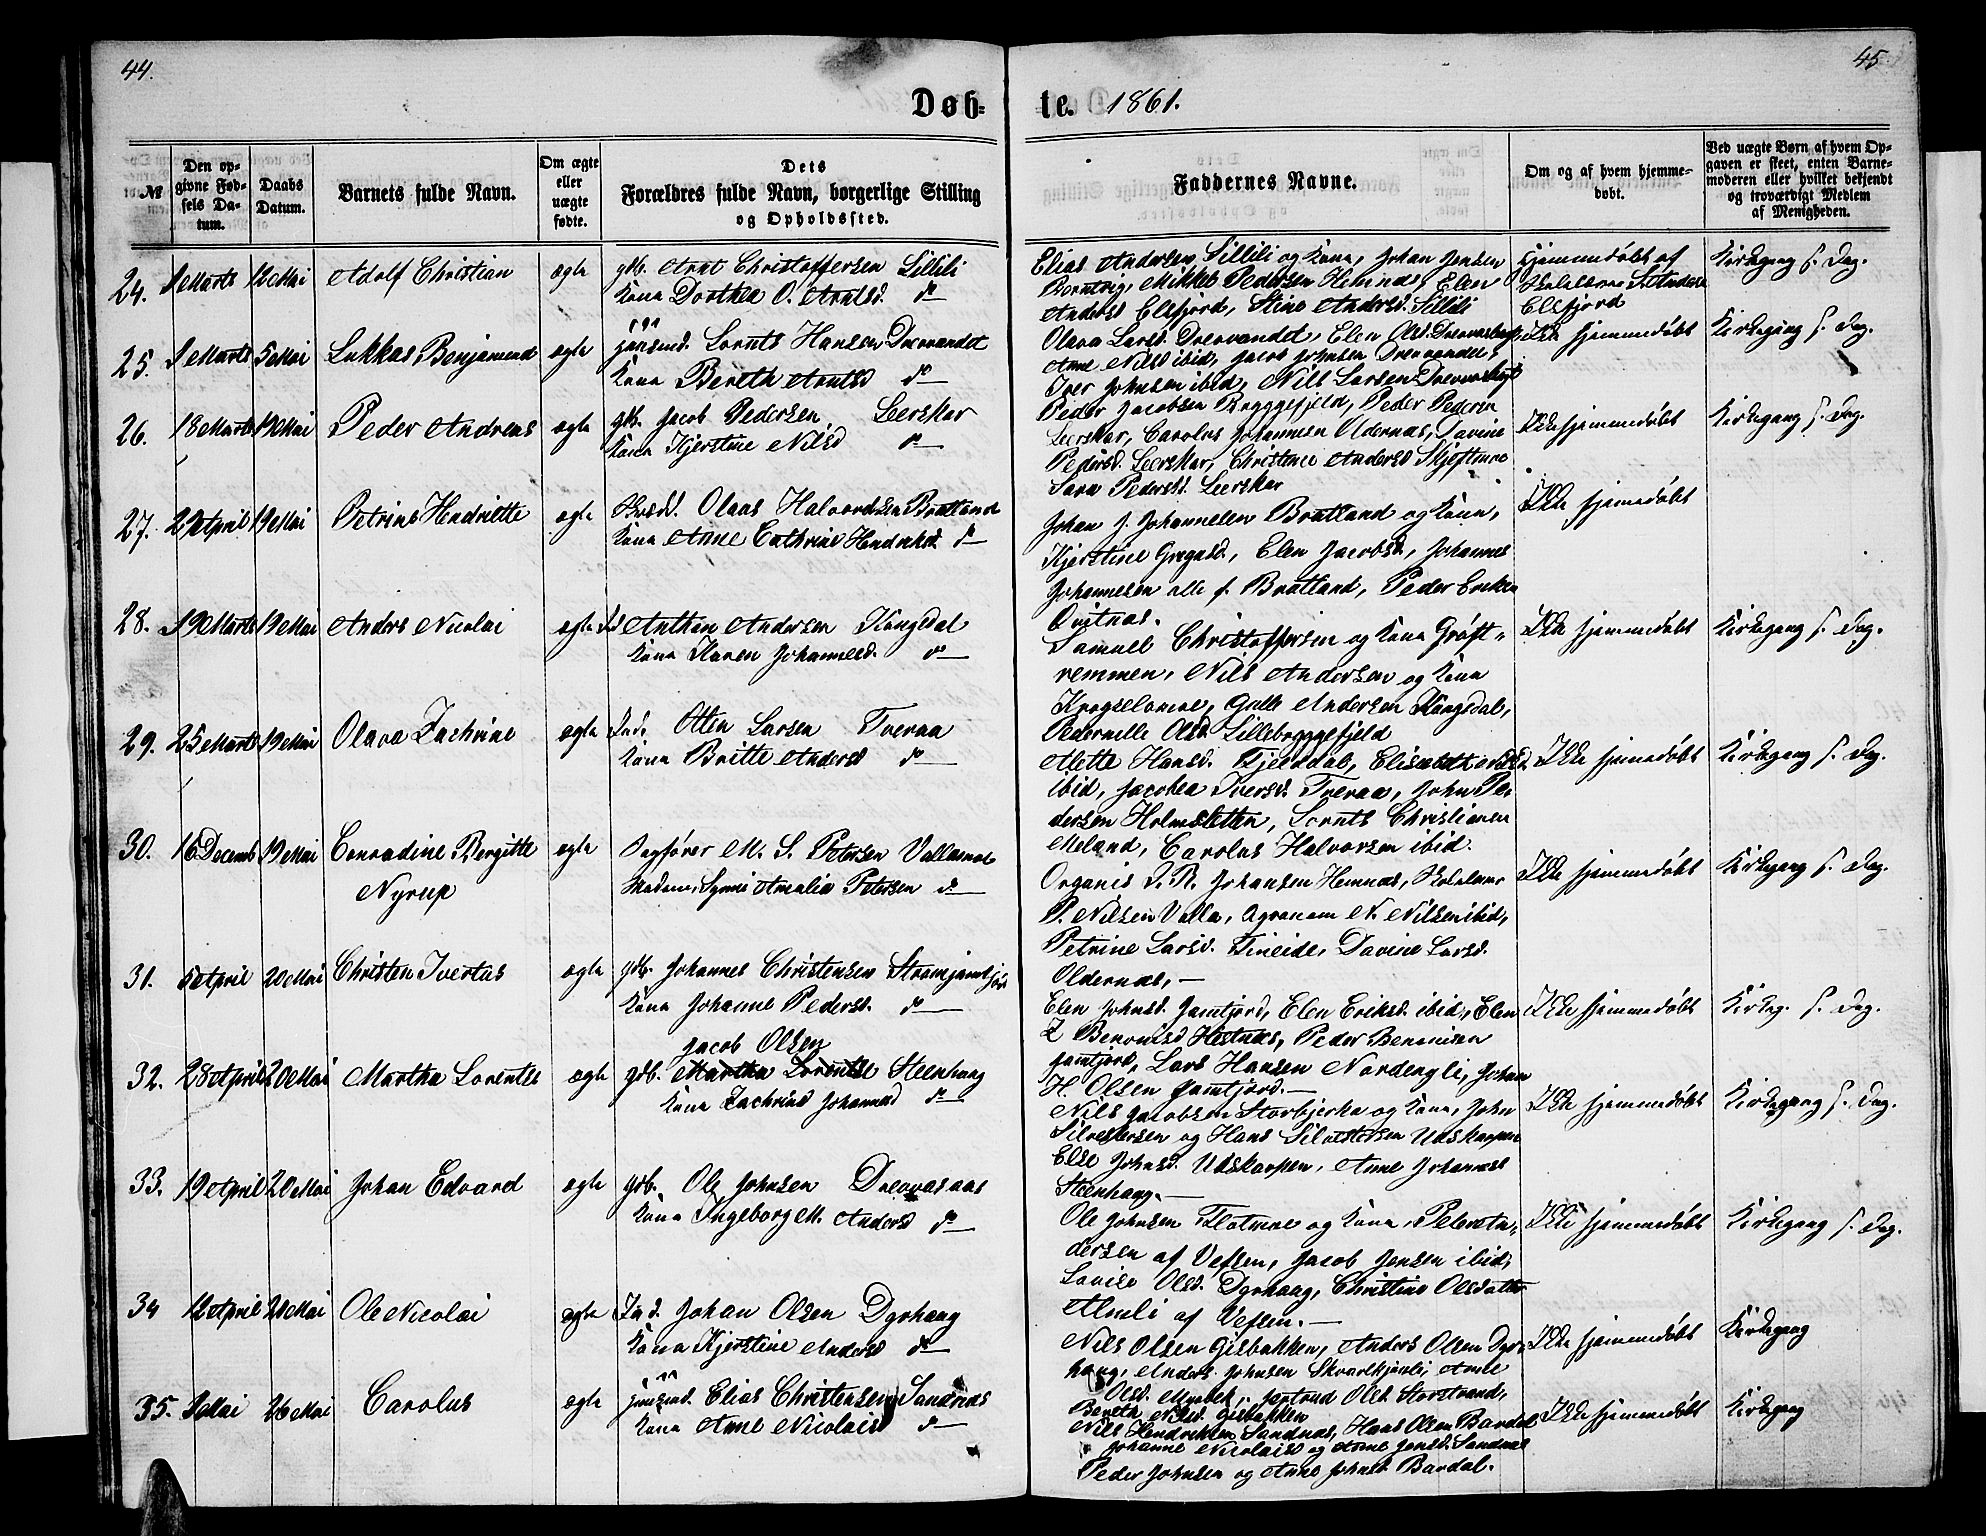 44.
45
Døb-
te. 1861.
№
Den op-
givne Fød-
sels Da-
tum.
Daabs
Datum.
Barnets fulde Navn.
Om ægte
eller
uægte
fødte.
Dets
Forældres fulde Navn, borgerlige Stilling
og Opholdssted.
Faddernes Navne.
Om og af hvem hjemme-
døbt.
Ved uægte Børn af hvem Op-
gaven er skeet, enten Barne-
moderen eller hvilket bekjendt
og troværdigt Medlem
af Menigheden.
24. 1 Marts 12 Mai Adolf Christian ægte gdb. Arnt Christoffersen Lillili
Kona Dorthea O. Arntsd. do
Elias Andersen Lillili og Kona, Johan Jensen
Mikkel Pedersen Hemnæs, Elen
Anders Elsfjord, Stine Andersd. Lillili
Hjemmedøbt af
Skolelærer
Elsfjord
Kirkegang s. Dag.
25. 1 Marts 5 Mai Lukkas Benjamend ægte Lornts Hansen Drevvandet
Kona Bereth Arntsd do
Olava Larsd. Drevvandet, Elen Olsd.
Anne Nilsd ibid, Jacob Johnsen Drevvandet,
Iver Johnsen ibid, Nils Larsen
Ikke hjemmedøbt
Kirkegang s. Dag.
26. 18 Marts 19 Mai Peder Andreas ægte gdb. Jacob Pedersen Leerskar
Kona Kjerstine Nilsd do
Peder Jacobsen Bryggefjeld, Peder Pedersen
Leerskar, Carolus Johannesen Aldernæs, Davine
Pedersd. Leerskar, Christine Andersd
Sara Pedersd. Leerskar
Ikke hjemmedøbt
Kirkegang s. Dag.
27. 2 April 19 Mai Petrine Hendriette ægte Olaas Halvordsen Bratland
Kona Anne Cathrine Hendriksd. do
Johan J. Johannesen Bratland og Kona,
Kjerstine Gregusd., Elen Jacobsd, Johannes
Johannesen alle f. Bratland, Peder Eriksen
Qvitnæs.
Ikke hjemmedøbt
28. 19 Marts 19 Mai Anders Nicolai ægte Anthon Andersen Kangsdal
Kona Karen Johannesd. do
Samuel Christoffersen og Kona Grøft-
remmen, Nils Andersen og Kona
Andersen Kangsdal,
Pedernille Olsd Lillebryggefjeld
Ikke hjemmedøbt
Kirkegang s. Dag.
29. 25 Marts 19 Mai Olava Zachrine ægte Ind. Otten Larsen Tveraa
Kona Britte Andersd do
Mette Hansd. Fjelddal,
ibid, Jacobea Iversd. Tveraa, John Pe-
dersen Holmsletten, Lornts Christiansen
Meland, Carolus Halvorsen ibid.
Ikke hjemmedøbt
Kirkegang s. Dag.
30. 16 Decemb 19 Mai Conradine Bergitte
Nyrup
ægte Sagfører M. S. Petersen Vallasnæs
Madame Synni Amalia Petersen do
Organis J. R. Johansen Hemnæs, Skolelærer
P. Nilsen Valla, Agronom N. Nilsen ibid,
Petrine Larsd. Fineide, Davine Larsd.
Oldernæs,—
Ikke hjemmedøbt
Kirkegang s. Dag.
31. 5 April 20 Mai Christen Ivertus ægte gdb. Johannes Christensen
Kona Johanne Pedersd. do
Elen Johnsd. Jamtjord, Elen Eriksd. ibid, Elen
Z Benonisd Hestnæs, Peder Benonisen
Jamtjord, Lars Hansen Nordengli, Johan
H. Olsen Jamtjord.—
Ikke hjemmedøbt
Kirkeg. s. Dag.
32. 28 April 20 Mai Martha Lorentse ægte gdb. Martha Lorentse Steenhaug
Jacob Olsen
Kona Zachrine Johannesd do
Nils Jacobsen Storbjerka og Kona, John
Silvestersen og Hans Silvestersen Udskarpen
Else Johnsd. Udskarpen, Anne Johannesd
Steenhaug.—
Ikke hjemmedøbt
Kirkegang s. Dag.
33. 19 April 20 Mai Johan Edvard ægte gdb. Ole Johnsen Drevvasaas
Kona Ingeborg M. Andersd do
Ole Johnsen Flotmoe og Kona, Peter An-
dersen af Vefsen, Jacob Jensen ibid,
Lovise Olsd. Dyrhaug, Christine Olsdatter
Almli af Vefsen.—
Ikke hjemmedøbt
Kirkegang s. Dag.
34 12 April 20 Mai Ole Nicolai ægte Ind. Johan Olsen Dyrhaug
Kona Kjerstine Andersd do
Nils Olsen Gilsbakken, Anders Olsen Dyr-
haug, Anders Johnsen Anne
Olsd. Jertrud Olsd. Storstrand,
Bereth Nilsd. Gilsbakken
Ikke hjemmedøbt
Kirkegang
35. Mai 26 Mai Carolus ægte Elias Christensen Sandnæs
Kona Anne Nicolaisd do
Nils Hendriksen Sandnæs, Hans Olsen Bardal
Johanne Nicolaisd og Anne Jensd. Sandnæs
Peder Johnsen og Anne Johnsd. Bardal.
Ikke hjemmedøbt
Kirkegang